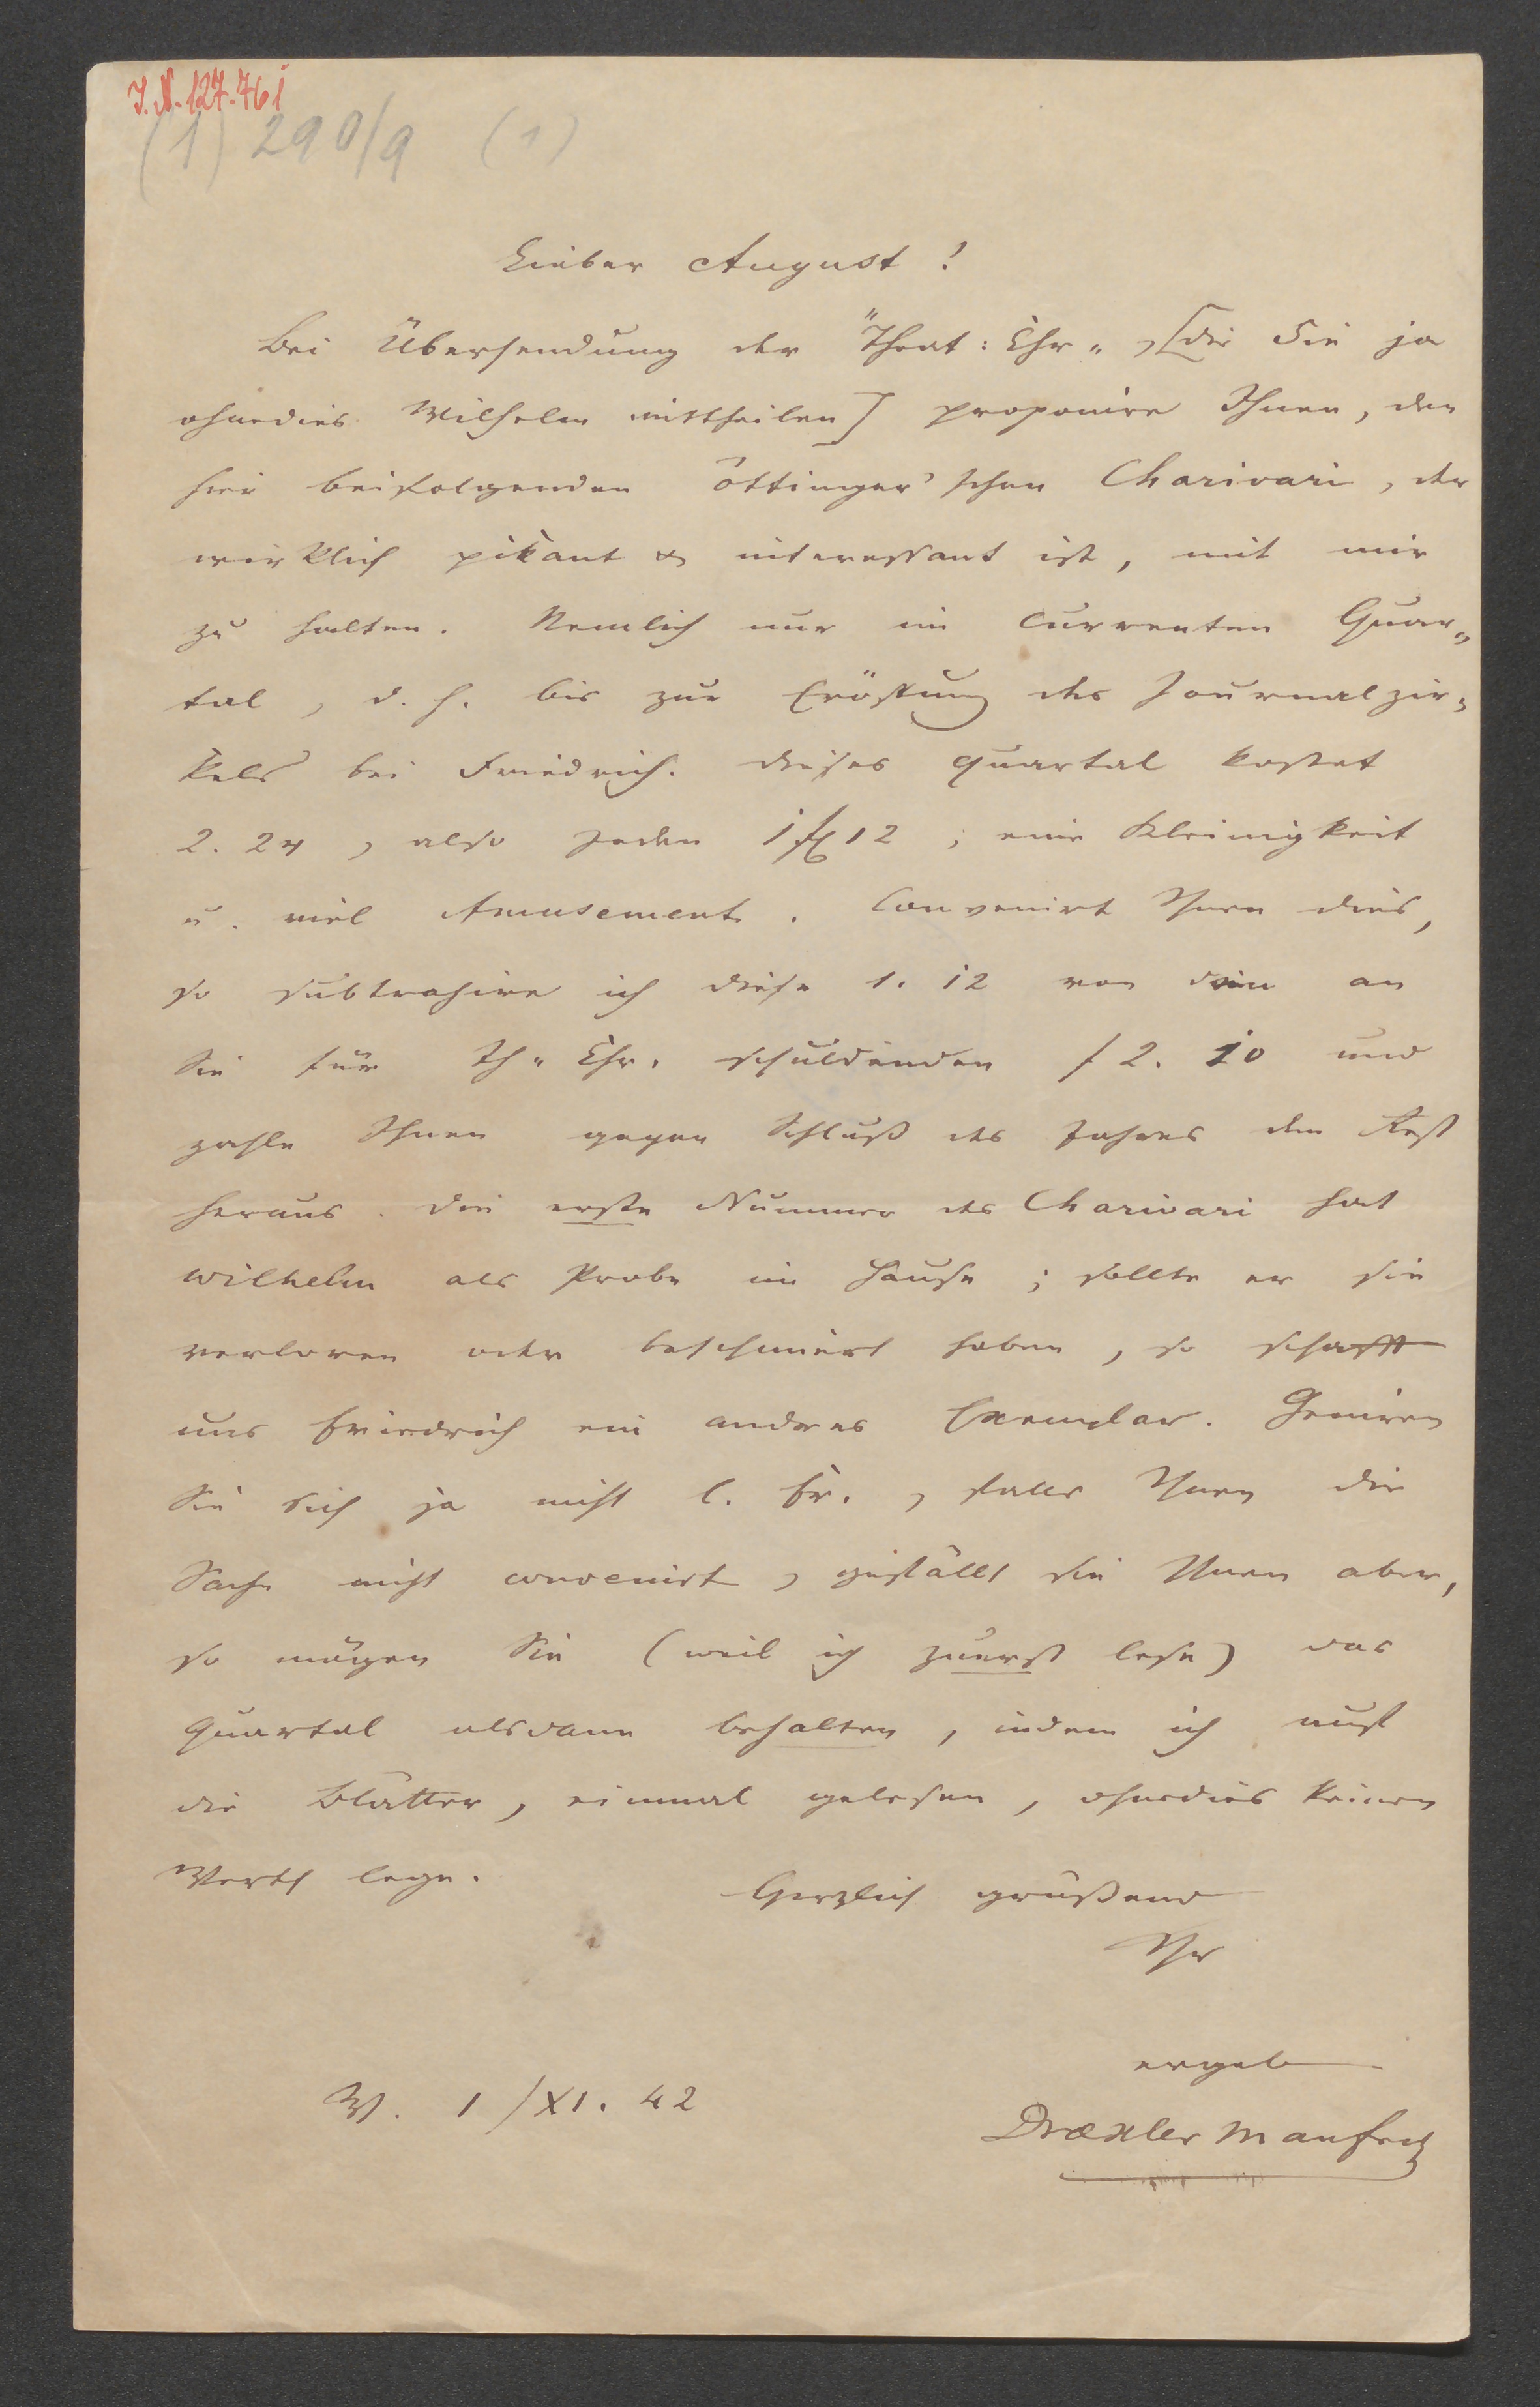 I.N. 127.761
(1) 290/9 (1)
Lieber August!
Bei Übersendung der "Theat: Chr„ , [die Sie ja
ohnedies Wilhelm mittheilen] proponire Ihnen, den
hier beifolgenden Öttinger'schen Charivari, der
wirklich pikant & interessant ist, mit mir
zu halten. Nemlich nur im currenten Quar„
tal, d. h. bis zur Eröffung des Journalzir„
kels bei Friedrich. Dieses Quartal kostet
2. 24, also Jeden 1 f 12; eine Kleinigkeit
u. viel Amusement. Convenirt Ihnen dies,
so subtrahire ich diese 1. 12 von den an
Sie für Th„ Chr. schuldenden f 2. 10 und
zahle Ihnen gegen Schluß des Jahres den Rest
heraus. Die erste Nummer des Charivari hat
Wilhelm als Probe im Hause; sollte er sie
verloren oder beschmiert haben, so schafft
uns Friedrich ein andres Exemplar. Geniren
Sie sich ja nicht l. Fr., falls Ihnen die
Sache nicht convenirt, gefällt sie Ihnen aber,
so mögen Sie (weil ich zuerst lese) das
Quartal alsdann behalten, indem ich auf
die Blätter, einmal gelesen, ohnedies keinen
Werth lege.
Herzlich grüßend
Ihr
ergeb
W. 1/XI. 42
Dræxler Manfred